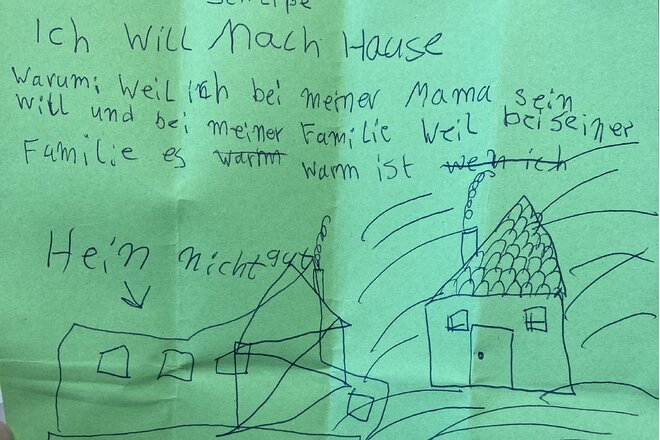 Ich Will Nach Hause
Warum: Weil ich bei meiner Mama sein
will und bei meiner Familie weil bei seiner
Familie es warm warm ist wen ich
Hein nicht gut